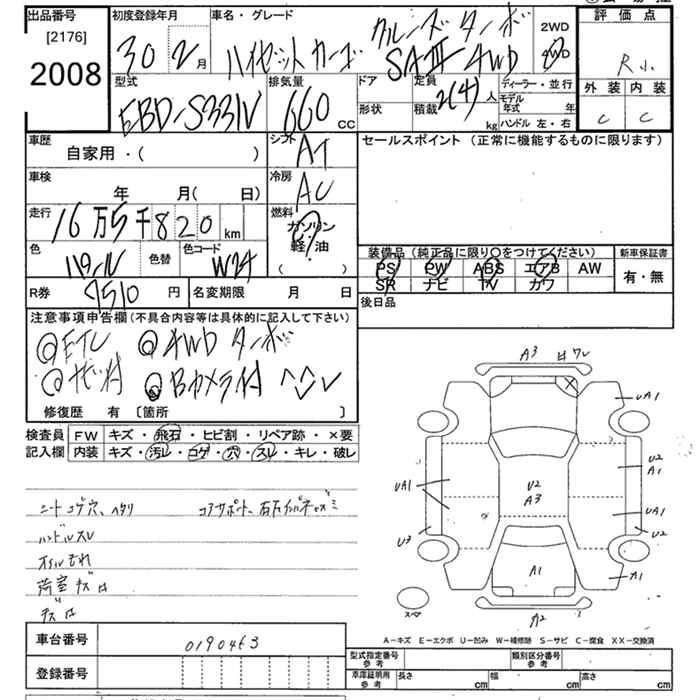 出品番号 初度登録年月 車名・グレード 2WD 評価点
[2176] 30 2月 ハイゼットカーゴ クルーズターボ 4WD R小
2008 SAIII 4WD
型式 排気量 ドア 定員 2(4)人 ディーラー・並行 外装 内装
EBD-S331V 660 CC 形状 積載 kg モデル年式 年 C C
ハンドル 左・右
車歴 シフト セールスポイント (正常に機能するものに限ります)
自家用・( ) AT
車検 冷房
年 月( 日) AC
走行 燃料
16万5千820km ガソリン
軽・油
( )
色 色替 色コード 装備品(純正品に限り○をつけてください) 新車保証書
パール W24 PS PW ABS エアB AW 有・無
SR ナビ TV カワ
R券 7510円 名変期限 月 日 後日品
注意事項申告欄(不具合内容等は具体的に記入して下さい)
ETC 4WD ターボ
Bカメラ付
修復歴 有 〔箇所 〕
検査員 FW キズ・飛石・ヒビ割・リペア跡・×要
記入欄 内装 キズ・汚レ・コゲ・穴・スレ・キレ・破レ
シートコゲ穴、ヘタリ
ハンドルスレ
オイルもれ
荷室キズ
A3
UA1
U2
A1
UA1 U2
A3 UA1
U3 U2
A1 A1
スペア A2
A-キズ E-エクボ U-凹み W-補修跡 S-サビ C-腐食 XX-交換済
車台番号 0190463
型式指定番号 参考 類別区分番号 参考
登録番号 車庫証明用 参考 長さ cm 幅 cm 高さ cm